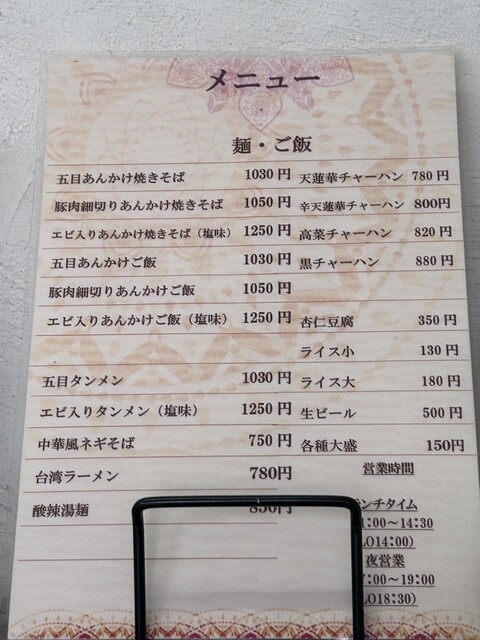 メニュー
麺・ご飯
五目あんかけ焼きそば 1030円
豚肉細切りあんかけ焼きそば 1050円
エビ入りあんかけ焼きそば（塩味） 1250円
五目あんかけご飯 1030円
豚肉細切りあんかけご飯 1050円
エビ入りあんかけご飯（塩味） 1250円
五目タンメン 1030円
エビ入りタンメン（塩味） 1250円
中華風ネギそば 750円
台湾ラーメン 780円
酸辣湯麺 850円
天蓮華チャーハン 780円
辛天蓮華チャーハン 800円
高菜チャーハン 820円
黒チャーハン 880円
杏仁豆腐 350円
ライス小 130円
ライス大 180円
生ビール 500円
各種大盛 150円
営業時間
ンチタイム
1:00～14:30
LO14:00)
夜営業
7:00～19:00
LO18:30)